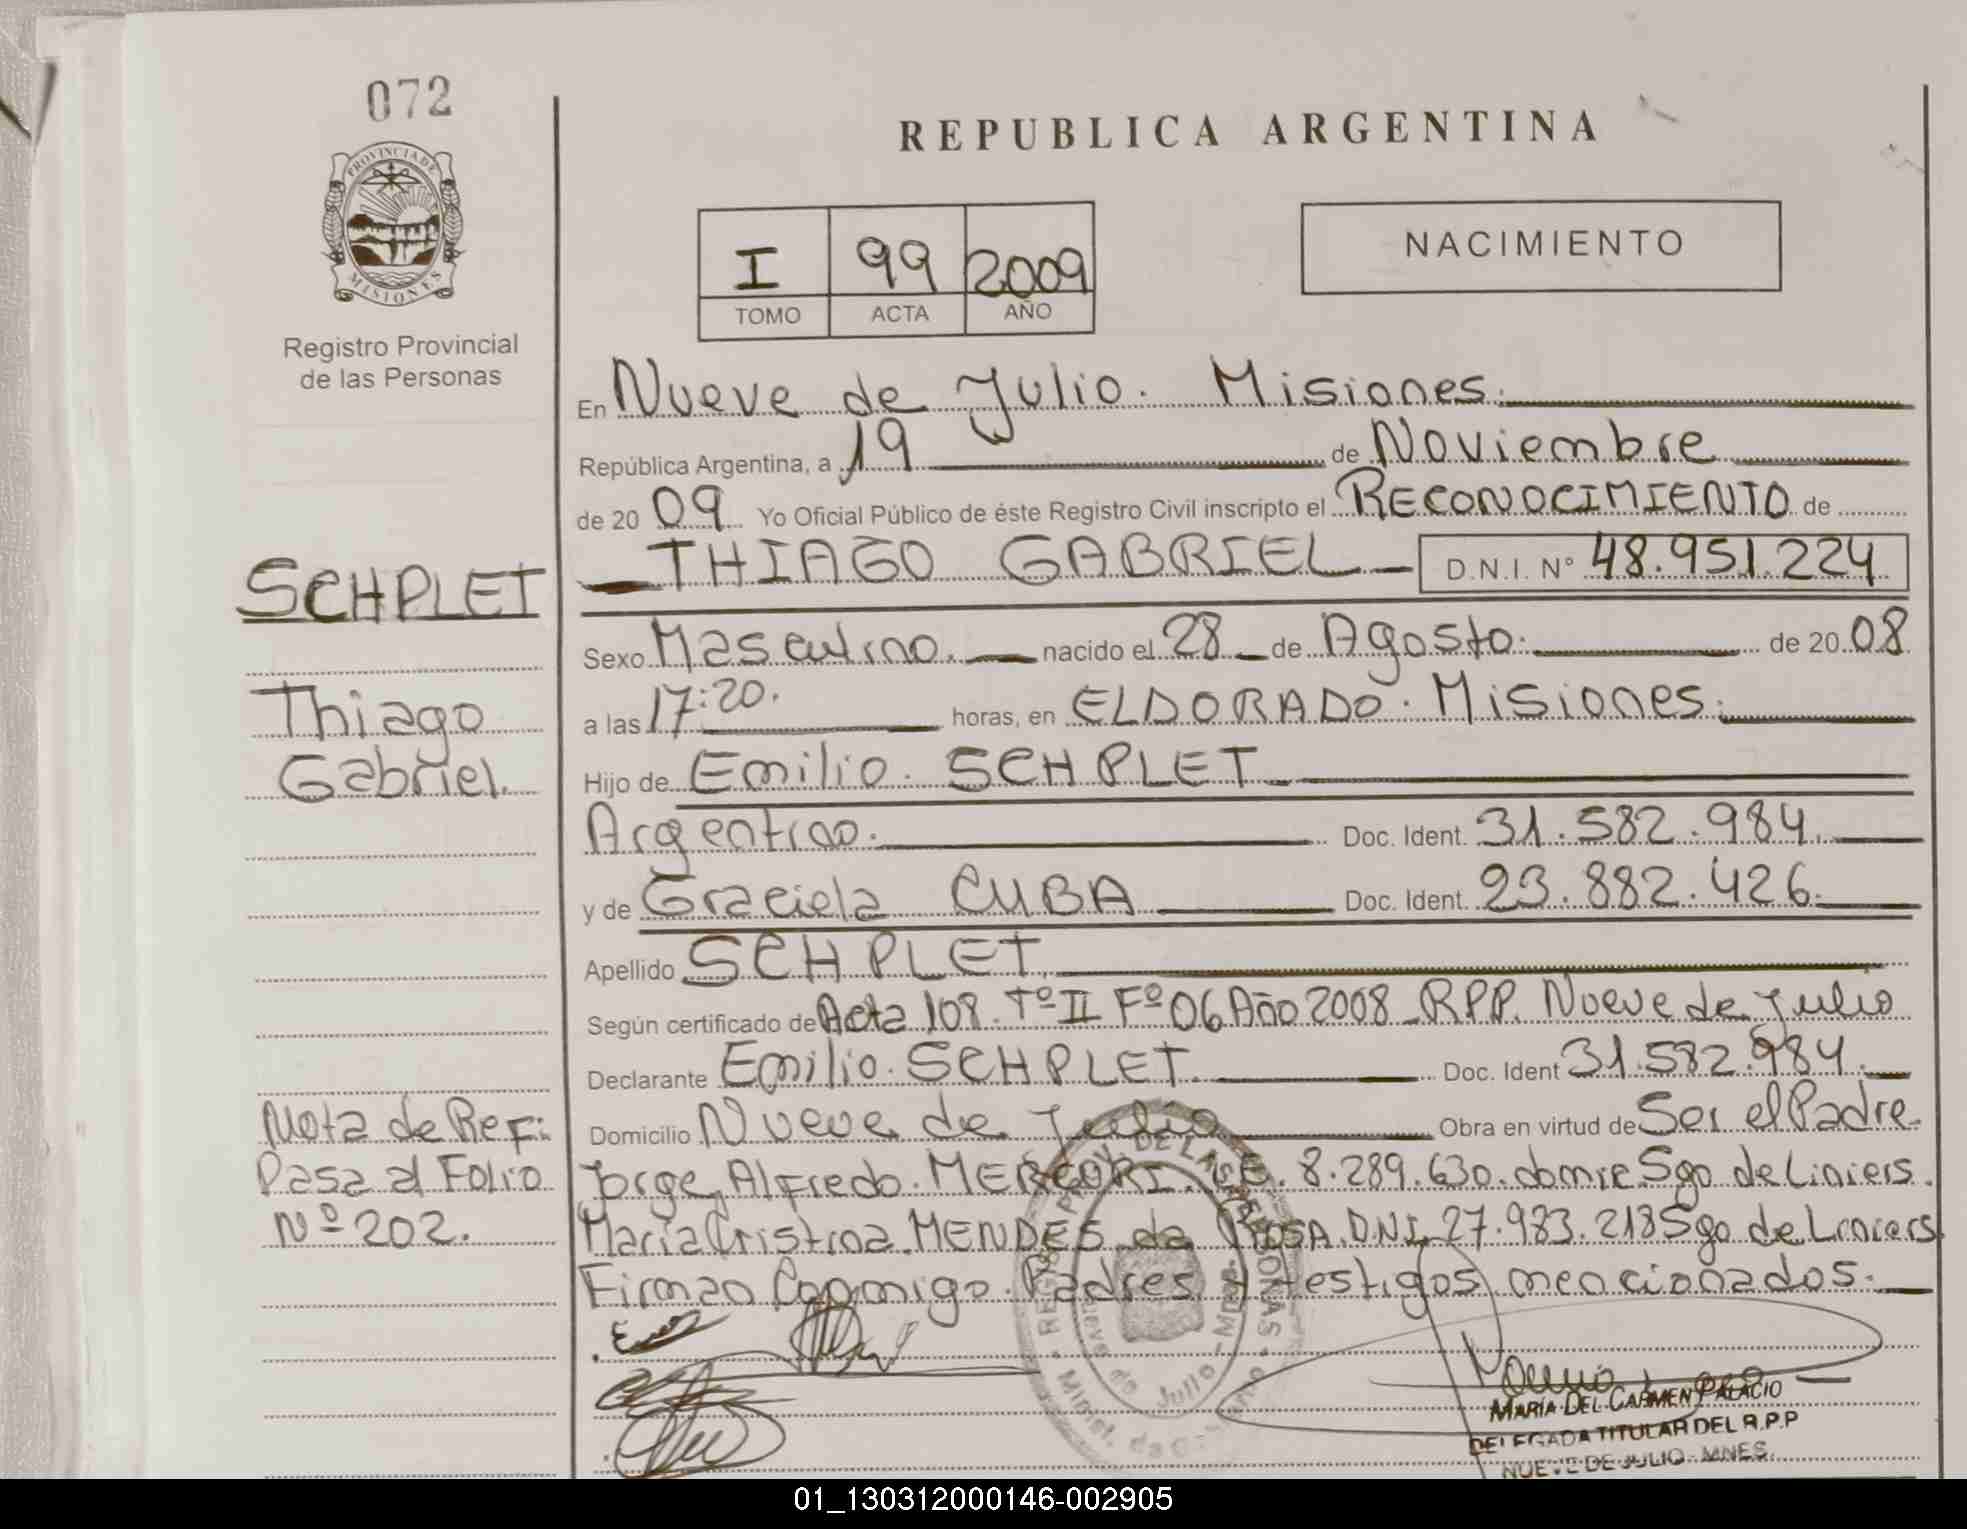 072
PROVINCIA DE
MISIONES
Registro Provincial
de las Personas
REPUBLICA ARGENTINA
I 99 2009
TOMO ACTA AÑO
NACIMIENTO
En Nueve de Julio. Misiones.
República Argentina, a 19 de Noviembre
de 20 09 Yo Oficial Público de éste Registro Civil inscripto el RECONOCIMIENTO de
THIAGO GABRIEL D.N.I. N° 48.951.224
SCHPLET
Thiago
Gabriel.
Sexo Masculino. nacido el 28 de Agosto. de 20 08
a las 17:20. horas, en ELDORADO. Misiones.
Hijo de Emilio. SCHPLET
Argentino. Doc. Ident. 31.582.984.
y de Graciela CUBA Doc. Ident. 23.882.426.
Apellido SCHPLET.
Según certificado de Acta 108. Tº II Fº 06 Año 2008_RPP. Nueve de Julio
Declarante Emilio. SCHPLET. Doc. Ident 31.582.984.
Domicilio Nueve de Julio Obra en virtud de Ser el Padre.
Jorge Alfredo. MERCORI. L.E. 8.289.630. domic Sgo de Liniers.
María Cristina. MENDES da ROSA. D.N.I. 27.983.218 Sgo de Liniers
Firman Conmigo. Padres y testigos mencionados.
Nota de Ref:
Pasa al Folio
Nº 202.
MARÍA DEL CARMEN PALACIO
DELEGADA TITULAR DEL R.P.P
NUEVE DE JULIO - MNES.
01_130312000146-002905